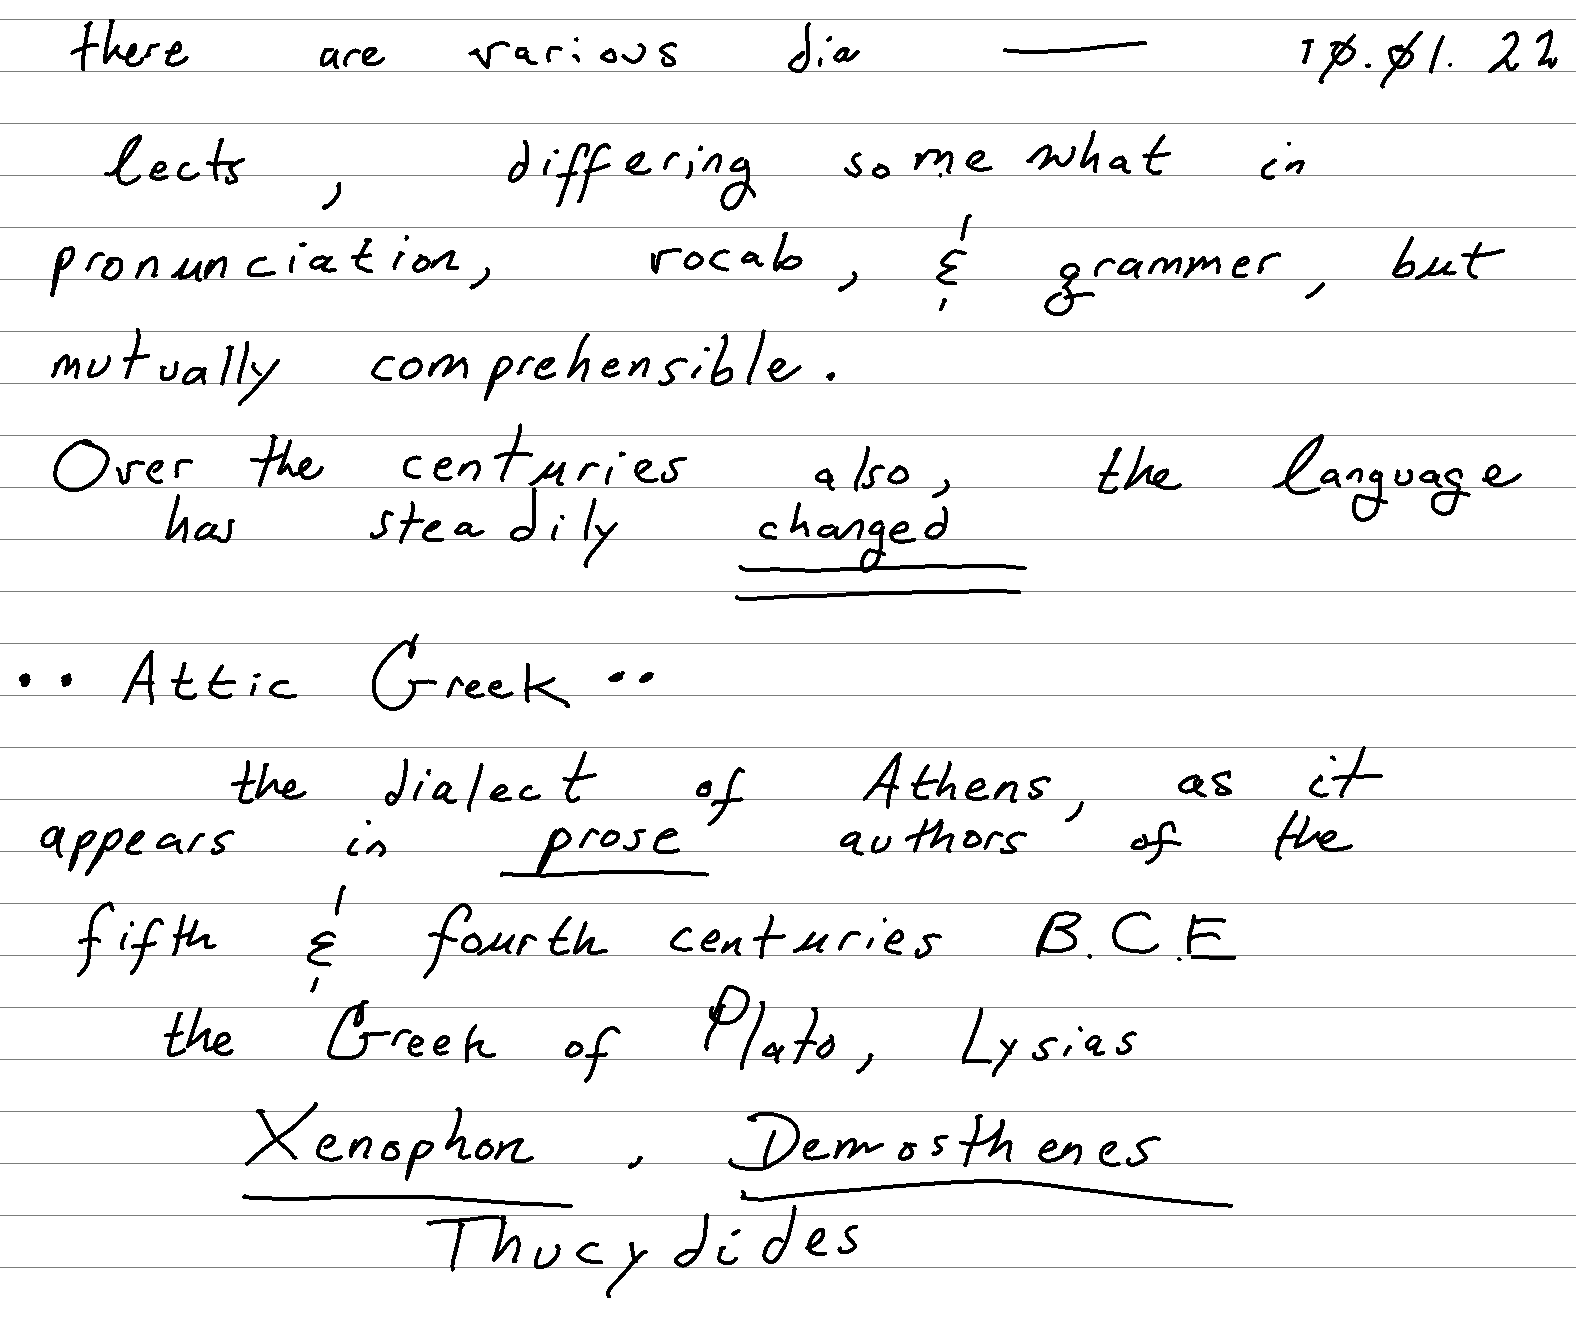 there are various dia — 10.01.22
lects, differing somewhat in
pronunciation, vocab, & grammer, but
mutually comprehensible.
Over the centuries also, the language
has steadily changed
·· Attic Greek ··
the dialect of Athens, as it
appears in prose authors of the
fifth & fourth centuries B.C.E
the Greek of Plato, Lysias
Xenophon, Demosthenes
Thucydides